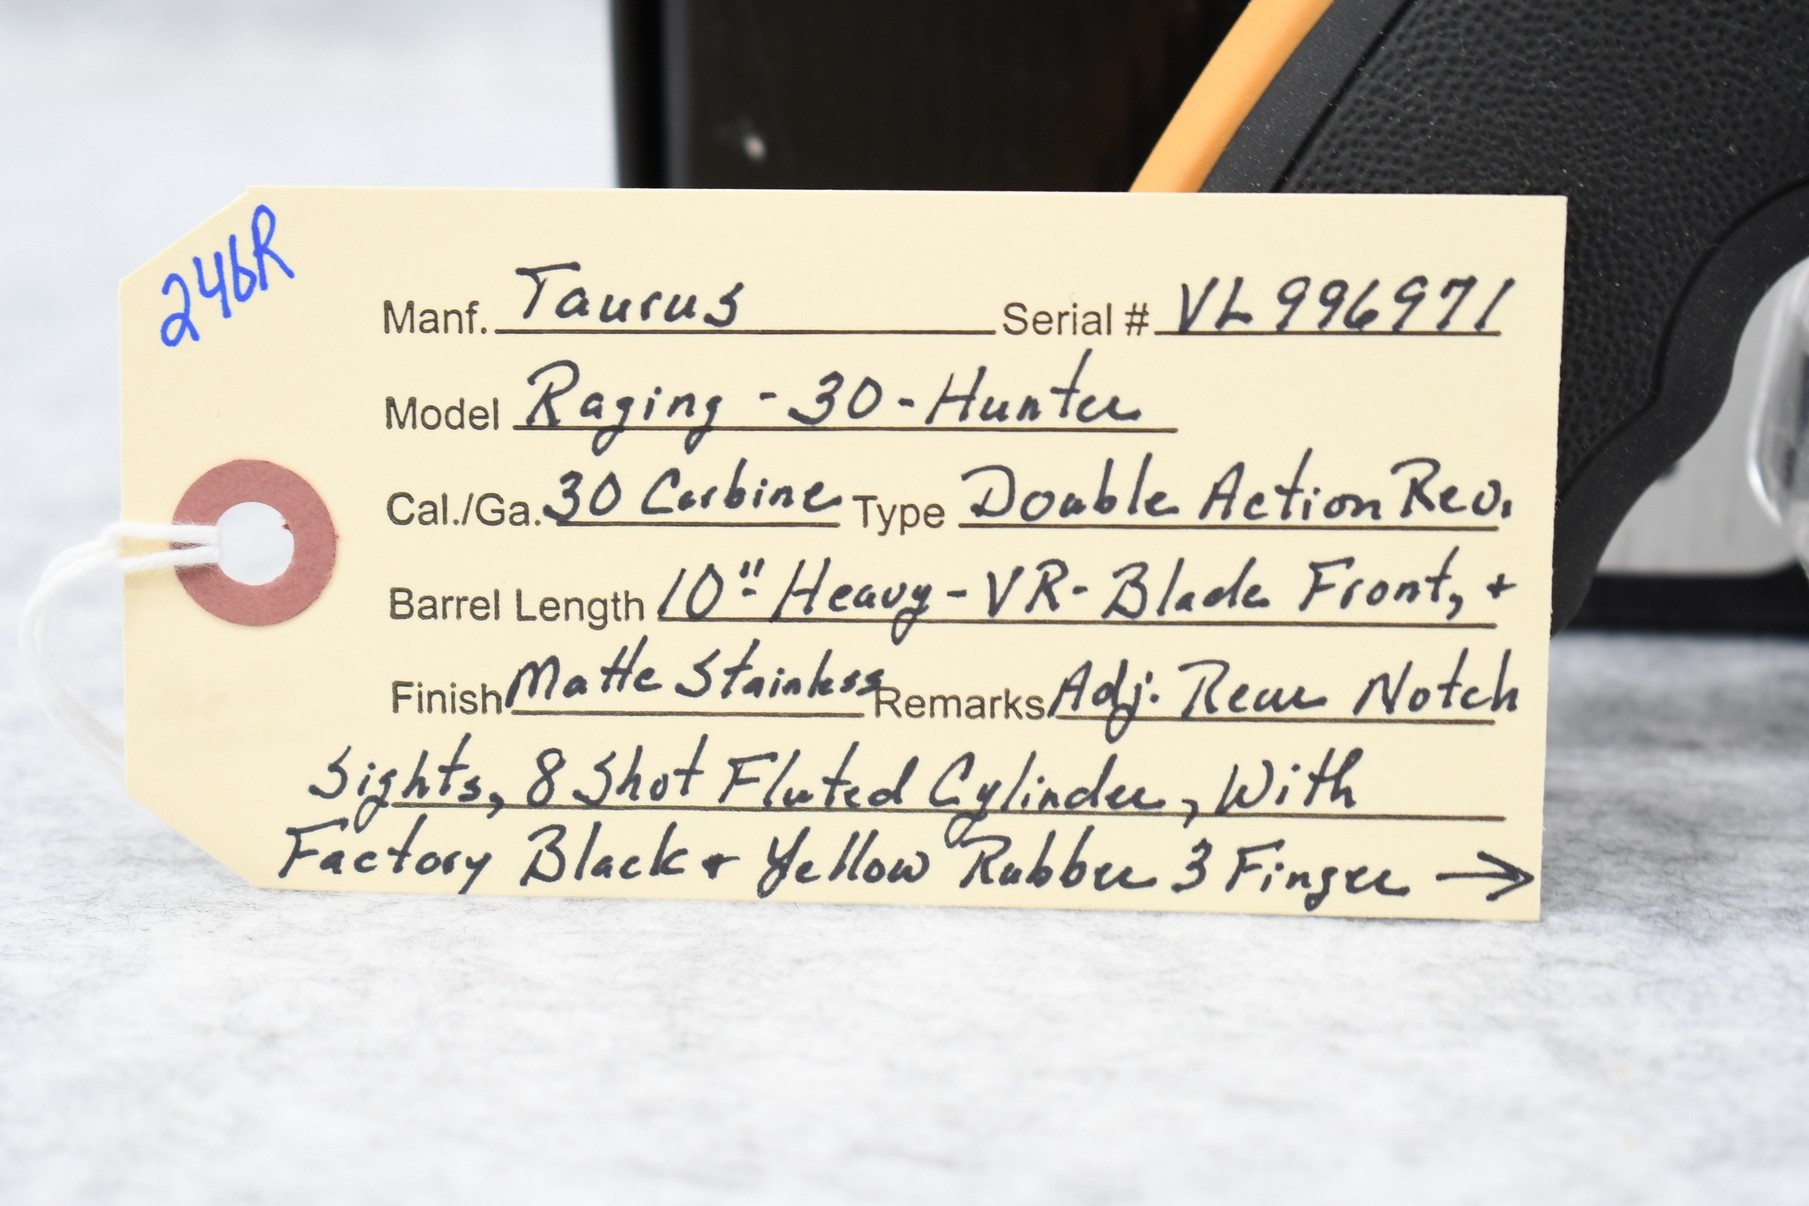 246R
Manf. Taurus Serial # VL996971
Model Raging - 30 - Hunter
Cal./Ga. 30 Carbine Type Double Action Rev.
Barrel Length 10" Heavy - VR - Blade Front, +
Finish Matte Stainless Remarks Adj. Rear Notch
Sights, 8 Shot Fluted Cylinder, With
Factory Black + Yellow Rubber 3 Finger →